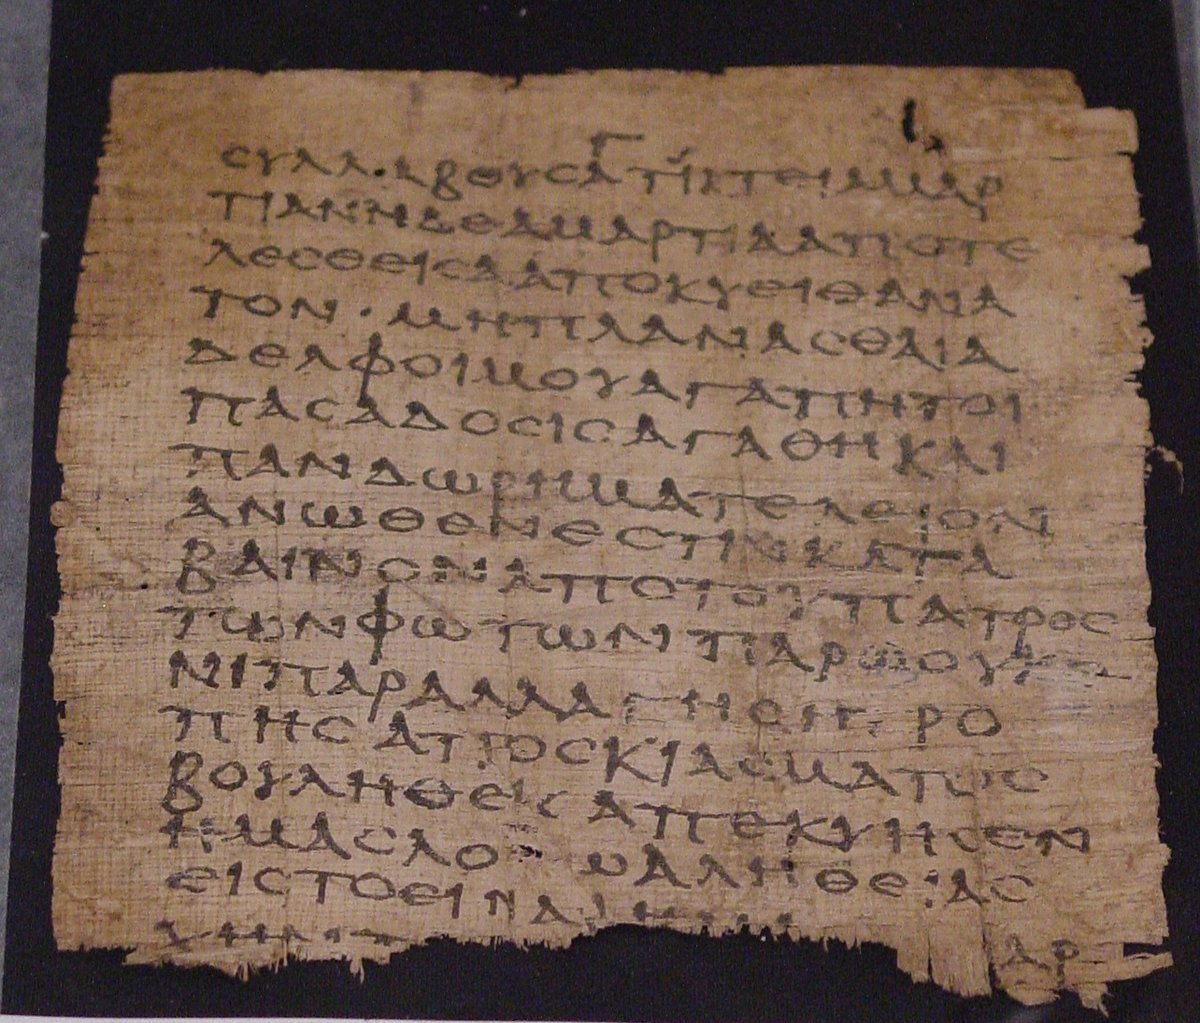 Γ
ϹΥΛΛΑΒΟΥϹΑΤΙΚΤΕΙΑΜΑΡ
ΤΙΑΝΗΔΕΑΜΑΡΤΙΑΑΠΟΤΕ
ΛΕϹΘΕΙϹΑΑΠΟΚΥΕΙΘΑΝΑ
ΤΟΝ·ΜΗΠΛΑΝΑϹΘΑΙΑ
ΔΕΛΦΟΙΜΟΥΑΓΑΠΗΤΟΙ
ΠΑϹΑΔΟϹΙϹΑΓΑΘΗΚΑΙ
ΠΑΝΔΩΡΗΜΑΤΕΛΕΙΟΝ
ΑΝΩΘΕΝΕϹΤΙΝΚΑΤΑ
ΒΑΙΝΟΝΑΠΟΤΟΥΠΑΤΡΟϹ
ΤΩΝΦΩΤΩΝΠΑΡΩΟΥΚΕ
ΝΙΠΑΡΑΛΛΑΓΗϹΗΤΡΟ
ΠΗϹΑΠΟϹΚΙΑϹΜΑΤΟϹ
ΒΟΥΛΗΘΕΙϹΑΠΕΚΥΗϹΕΝ
ΗΜΑϹΛΟΓΩΑΛΗΘΕΙΑϹ
ΕΙϹΤΟΕΙΝΑΙΗΜΑϹ
ΑΡ